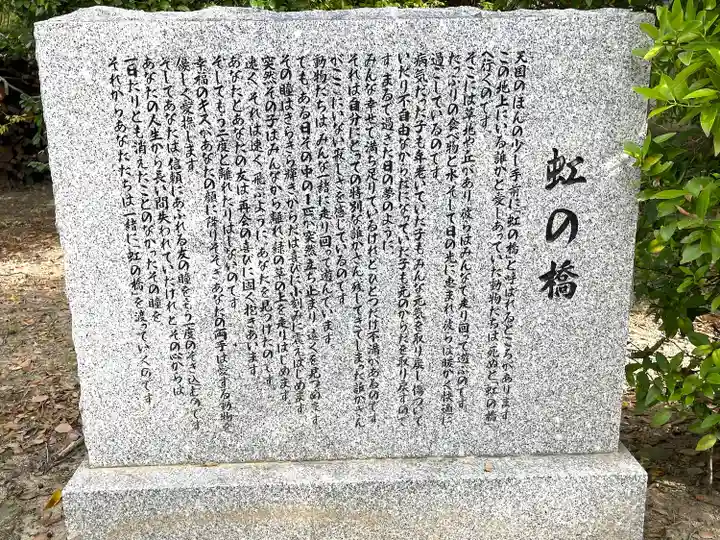 虹の橋
天国のほんの少し手前に「虹の橋」と呼ばれるところがあります
この地上にいる誰かと愛しあっていた動物たちは死ぬと「虹の橋」
へ行くのです。
そこには草地や丘があり、彼らはみんなで走り回って遊ぶのです
たっぷりの食べ物と水、そして日の光に恵まれ彼らは暖かく快適に
過ごしているのです。
病気だった子も年老いていた子もみんな元気を取り戻し、傷ついて
いたり不自由なからだになっていた子も元のからだを取り戻すので
す。まるで過ぎた日の夢のように
みんな幸せで満ち足りているけれど、ひとつだけ不満があるのです
それは自分にとっての特別な誰かさん、残してきてしまった誰かさん
がここにいない寂しさを感じているのです。
動物たちはみんな一緒に走り回って遊んでいます
でも、ある日その中の1匹が突然立ち止まり、遠くを見つめます
その瞳はきらきら輝き、からだは喜びに小刻みに震えはじめます
突然その子はみんなから離れ、緑の草の上を走りはじめます。
速く、それは速く、飛ぶように。あなたを見つけたのです。
あなたとあなたの友は再会の喜びに固く抱きあいます。
そしてもう二度と離れたりはしないのです。
幸福のキスがあなたの顔に降りそそぎ、あなたの両手は愛する動物を
優しく愛撫します。
そしてあなたは信頼にあふれる友の瞳をもう一度のぞき込むのです
あなたの人生から長い間失われていたけれど、その心からは
一日たりとも消えたことのなかったその瞳を
それからあなたたちは一緒に「虹の橋」を渡っていくのです。